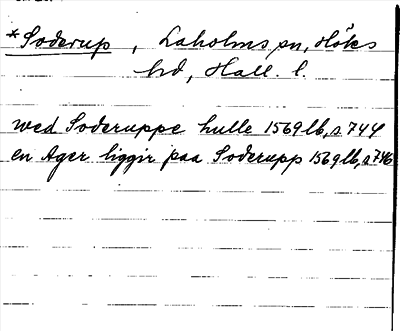 *Soderup, Laholms sn, Höks
hd, Hall. l.
wed Soderuppe hulle 1569 lb, s 744
en Ager liggir paa Soderupp 1569 lb, s 746